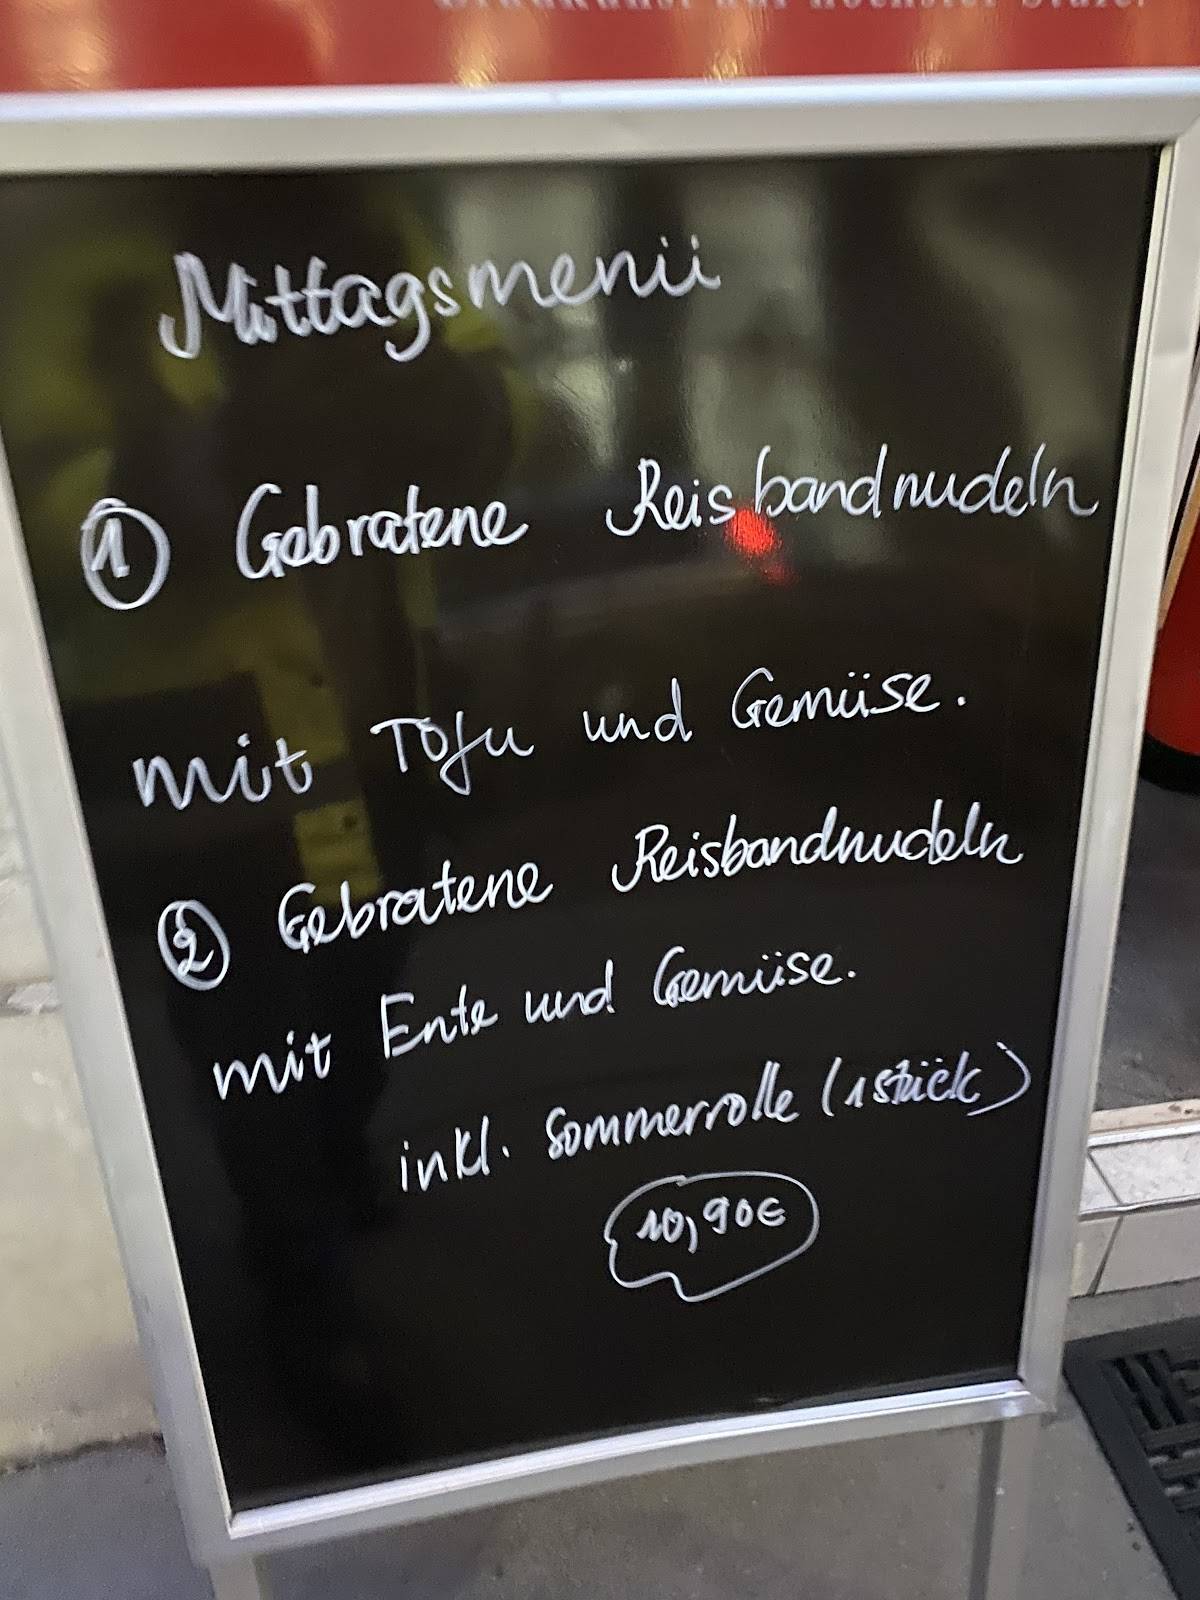 Mittagsmenü
① Gebratene Reisbandnudeln
mit Tofu und Gemüse.
② Gebratene Reisbandnudeln
mit Ente und Gemüse.
inkl. Sommerrolle (1 Stück)
10,90€